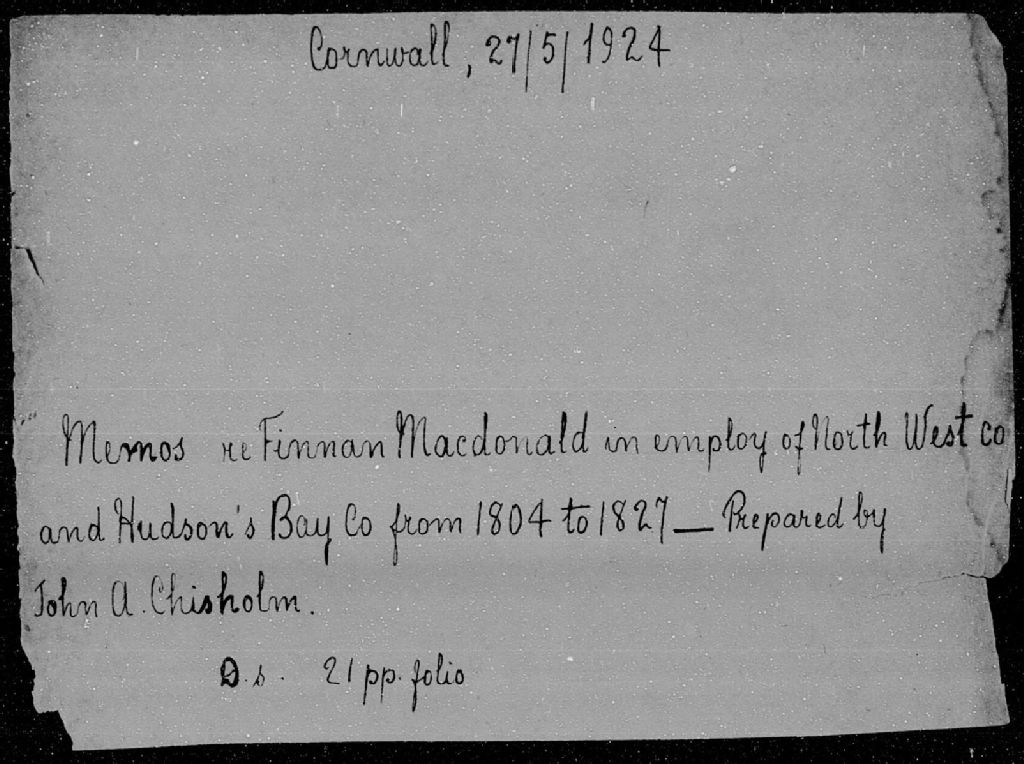 Cornwall, 27/5/1924
Memos re Finnan Macdonald in employ of North West co
and Hudson's Bay Co from 1804 to 1827 — Prepared by
John A. Chisholm.
D.s. 21 pp. folio